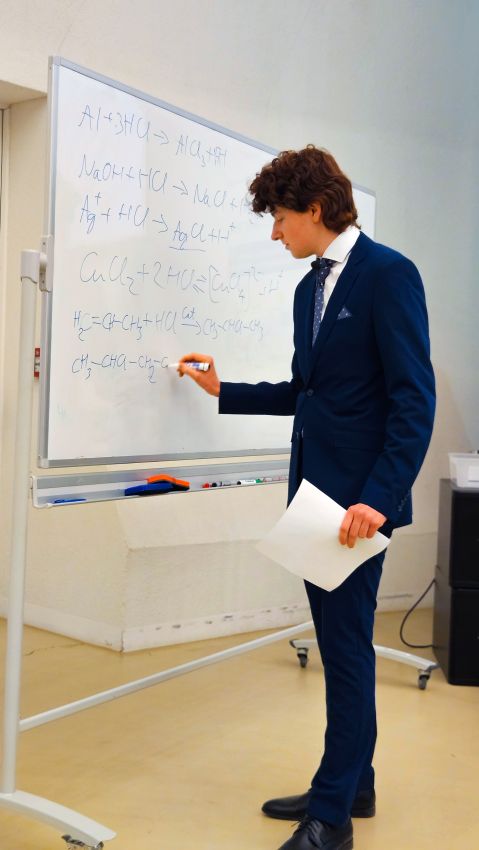 Al + 3HCl → AlCl₃ +
NaOH + HCl → NaCl +
Ag⁺ + HCl → AgCl + H⁺
CuCl₂ + 2HCl ⇌ [CuCl₄]²⁻ + H⁺
H₂C=CH-CH₃ + HCl →(Cat) CH₃-CHCl-CH₃
CH₃-CHCl-CH₂-